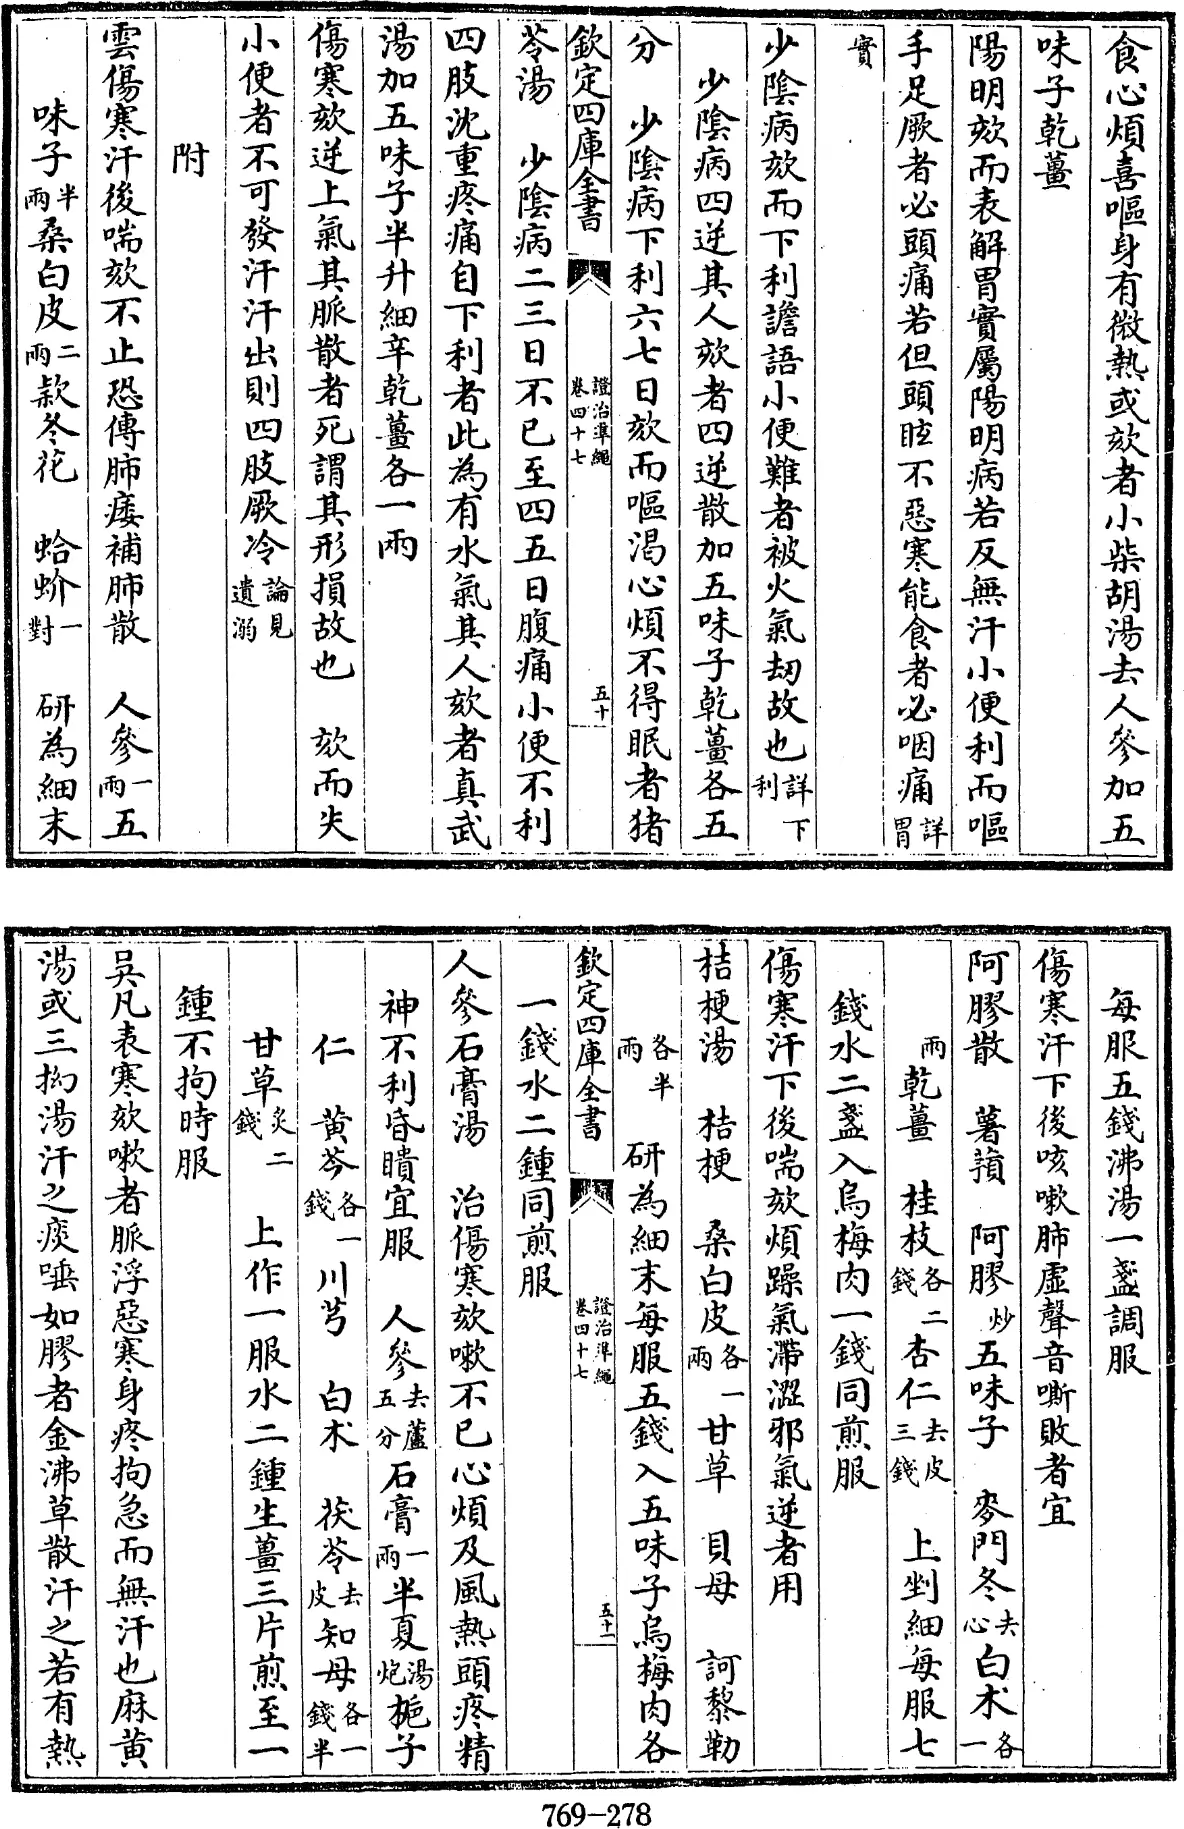 食心煩喜嘔身有微熱或欬者小柴胡湯去人參加五
味子乾薑
陽明欬而表解胃實屬陽明病若反無汗小便利而嘔
手足厥者必頭痛若但頭眩不惡寒能食者必咽痛詳胃
實
少陰病欬而下利譫語小便難者被火氣刼故也詳下利
少陰病四逆其人欬者四逆散加五味子乾薑各五
分　少陰病下利六七日欬而嘔渴心煩不得眠者猪
欽定四庫全書　證治準繩卷四十七　五十
苓湯　少陰病二三日不已至四五日腹痛小便不利
四肢沈重疼痛自下利者此為有水氣其人欬者真武
湯加五味子半升細辛乾薑各一兩
傷寒欬逆上氣其脈散者死謂其形損故也　欬而失
小便者不可發汗汗出則四肢厥冷論見遺溺
附
雲傷寒汗後喘欬不止恐傳肺痿補肺散　人參一兩五
味子半兩桑白皮二兩款冬花　蛤蚧一對　研為細末
每服五錢沸湯一盞調服
傷寒汗下後咳嗽肺虛聲音嘶敗者宜
阿膠散　薯蕷　阿膠炒五味子　麥門冬去心白术各一
兩乾薑　桂枝各二錢杏仁去皮三錢　上剉細每服七
錢水二盞入烏梅肉一錢同煎服
傷寒汗下後喘欬煩躁氣滯澀邪氣逆者用
桔梗湯　桔梗　桑白皮各一兩甘草　貝母　訶黎勒
各半兩　研為細末每服五錢入五味子烏梅肉各
欽定四庫全書　證治準繩卷四十七　五十一
一錢水二鍾同煎服
人參石膏湯　治傷寒欬嗽不已心煩及風熱頭疼精
神不利昏瞶宜服　人參去蘆五分石膏一兩半夏湯炮梔子
仁　黄芩各一錢川芎　白术　茯苓去皮知母各一錢半
甘草炙二錢　上作一服水二鍾生薑三片煎至一
鍾不拘時服
吳凡表寒欬嗽者脈浮惡寒身疼拘急而無汗也麻黄
湯或三拗湯汗之痰唾如膠者金沸草散汗之若有熱
769-278